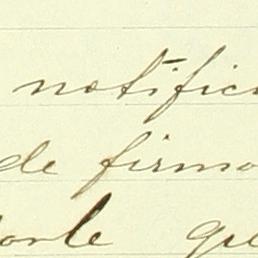 notific
de firma
orle que